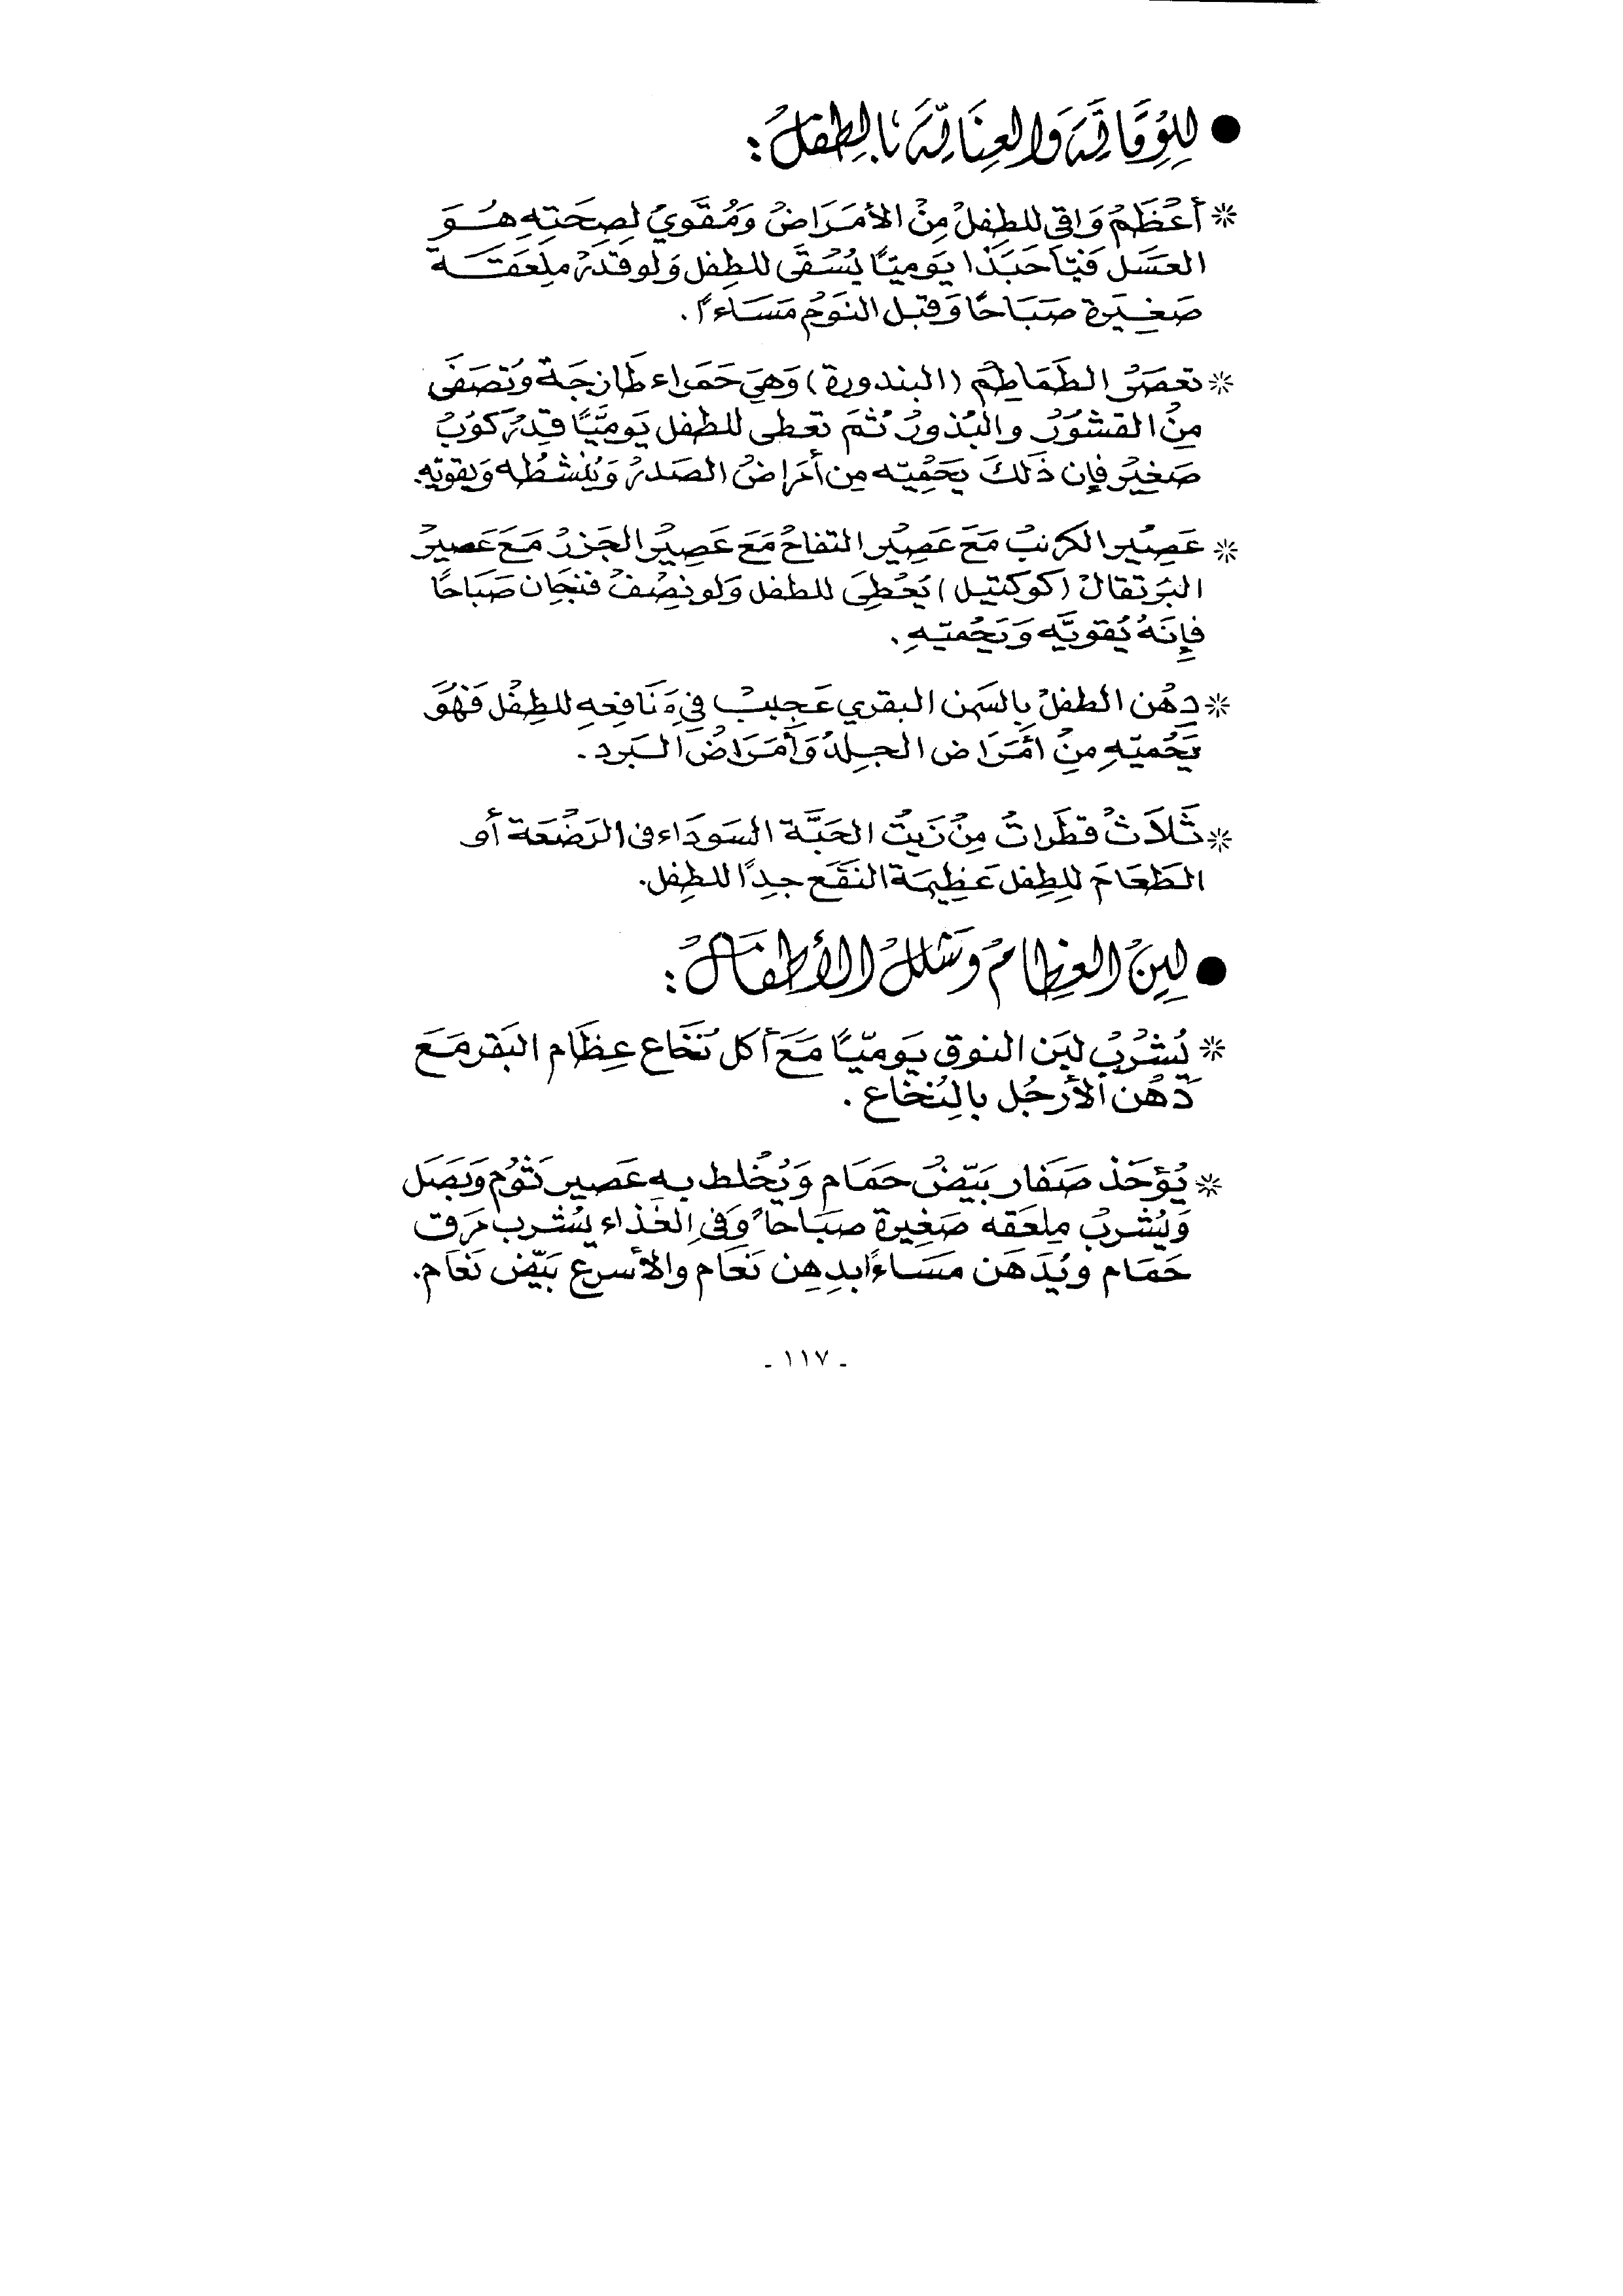 ● للوقاية والعناية بالطفل :
* أعظم واقي للطفل من الأمراض ومقوي لصحته هو
العسل فيا حبذا يوميًا يسقى للطفل ولو قدر ملعقة
صغيرة صباحًا وقبل النوم مساءً .
* تعصر الطماطم (البندورة) وهي حمراء طازجة وتصفى
من القشور والبذور ثم تعطى للطفل يوميًا قدر كوب
صغير فإن ذلك يحميه من أمراض الصدر وينشطه ويقويه.
* عصير الكرنب مع عصير التفاح مع عصير الجزر مع عصير
البرتقال (كوكتيل) يعطى للطفل ولو نصف فنجان صباحًا
فإنه يقويه ويحميه .
* دهن الطفل بالسمن البقري عجيب في منافعه للطفل فهو
يحميه من أمراض الجلد وأمراض البرد .
* ثلاث قطرات من زيت الحبة السوداء فى الرضعة أو
الطعام للطفل عظيمة النفع جدًا للطفل.
● لين العظام وشلل الأطفال :
* يشرب لبن النوق يوميًا مع أكل نخاع عظام البقر مع
دهن الأرجل بالنخاع .
* يؤخذ صفار بيض حمام ويخلط به عصير ثوم وبصل
ويشرب ملعقه صغيرة صباحاً وفى الغذاء يشرب مرق
حمام ويدهن مساءً ابدهن نعام والأسرع بيض نعام.
- ١١٧ -